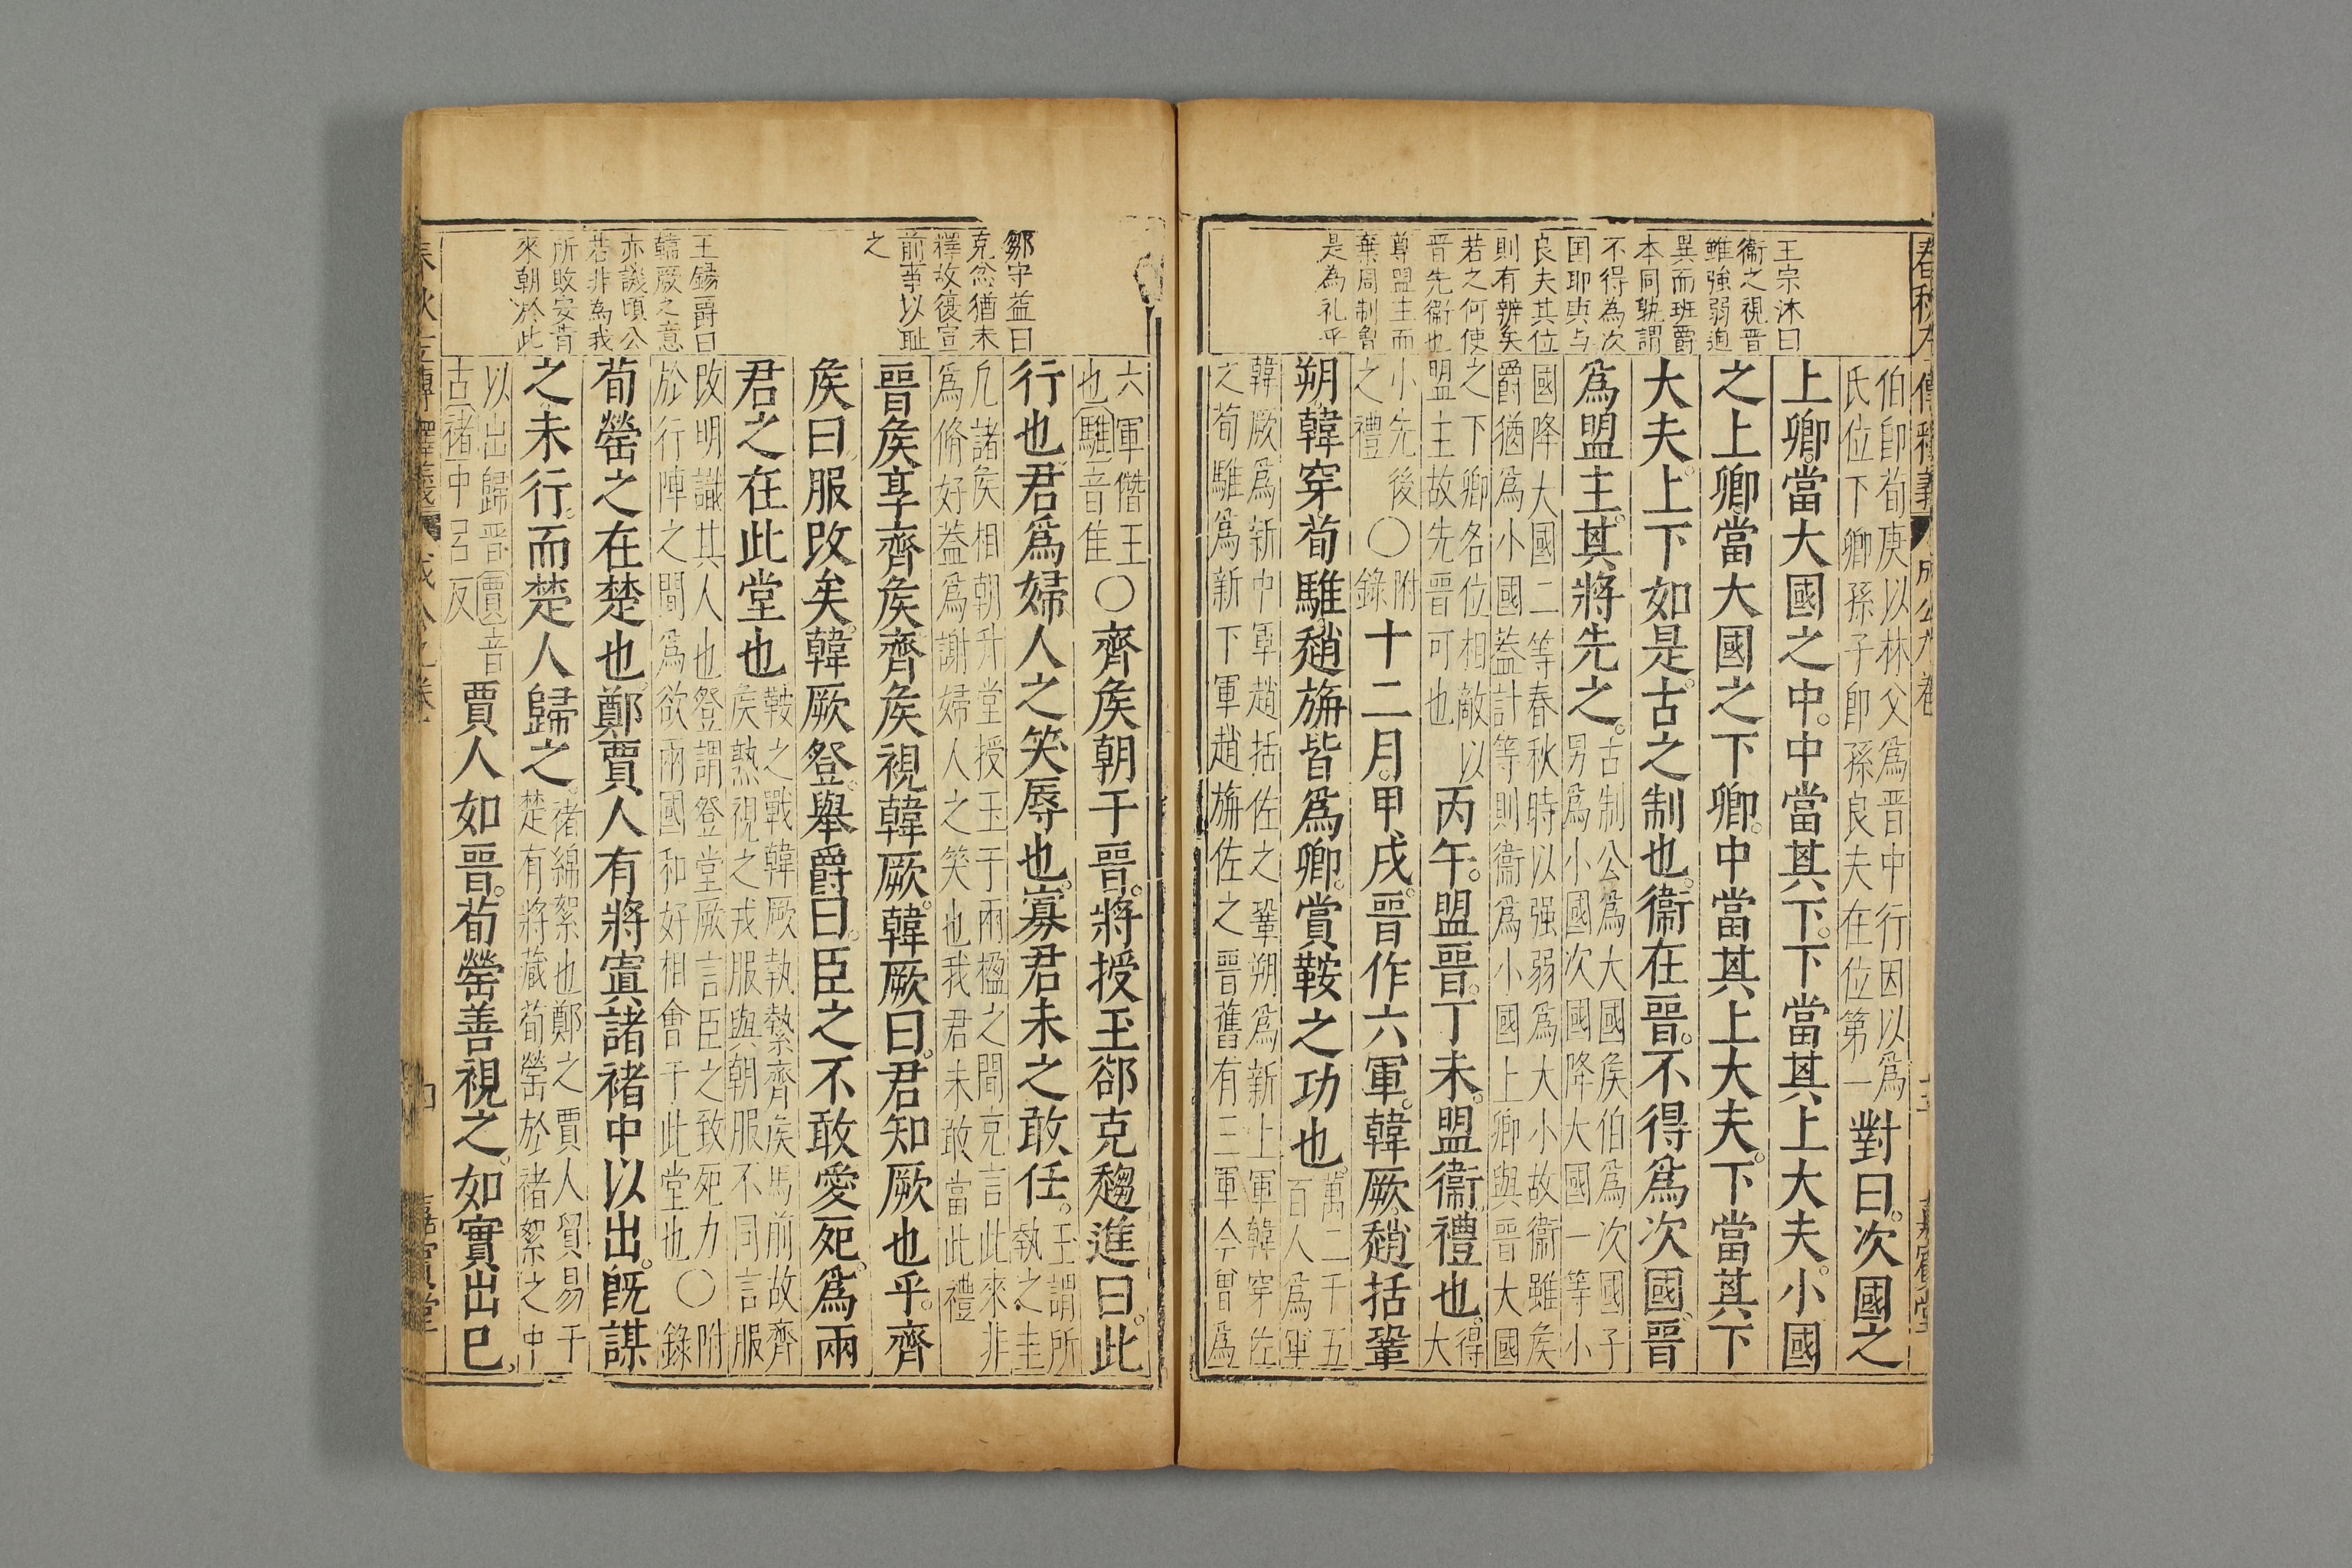 王宗沐曰
衞之視晋
雖強弱迥
異而班爵
本同孰謂
不得為次
国耶與与
良夫其位
則有辨矣
若之何使
晋先衞也
尊盟主而
棄周制魯
是為礼乎
伯卽荀庚以林父爲晋中行因以爲
氏位下卿孫子卽孫良夫在位第一對曰。次國之
上卿。當大國之中。中當其下。下當其上大夫。小國
之上卿。當大國之下卿。中當其上大夫。下當其下
大夫。上下如是。古之制也。衞在晋。不得爲次國。晋
爲盟主。其將先之。古制公爲大國矦伯爲次國子
男爲小國次國降大國一等小
國降大國二等春秋時以强弱爲大小故衞雖矦
爵猶爲小國蓋計等則衞爲小國上卿與晋大國
之下卿名位相敵以
盟主故先晋可也丙午。盟晋。丁未。盟衞。禮也。得
大
小先後〇附
之禮錄十二月。甲戌。晋作六軍。韓厥。趙括鞏
朔。韓穿。荀騅。趙旃皆爲卿。賞鞍之功也。萬二千五
百人爲軍
韓厥爲新中軍趙括佐之鞏朔爲新上軍韓穿佐
之荀騅爲新下軍趙旃佐之晋舊有三軍今曾爲
鄒守益曰
克忿猶未
釋故復宣
前事以耻
之
王錫爵曰
韓厥之意
亦譏頃公
若非為我
所敗安肯
來朝於此
六軍僭王
也騅音隹〇齊矦朝于晋。將授玉郤克趨進曰。此
行也。君爲婦人之笑辱也。寡君未之敢任。玉謂所
執之圭
凡諸矦相朝升堂授玉于兩楹之間克言此來非
爲脩好蓋爲謝婦人之笑也我君未敢當此禮
晋矦享齊矦齊矦視韓厥。韓厥曰。君知厥也乎。齊
矦曰。服改矣。韓厥登。舉爵曰。臣之不敢愛死。爲兩
君之在此堂也鞍之戰韓厥執縶齊矦馬前故齊
矦熟視之戎服與朝服不同言服
改明識其人也登謂登堂厥言臣之致死力〇附
於行陣之間爲欲兩國和好相會于此堂也錄
荀罃之在楚也。鄭賈人有將寘諸褚中以出。旣謀
之。未行。而楚人歸之。褚綿絮也鄭之賈人貿易于
楚有將藏荀罃於褚絮之中
以出歸晋賈音
古褚中呂反賈人如晋。荀罃善視之。如實出已。